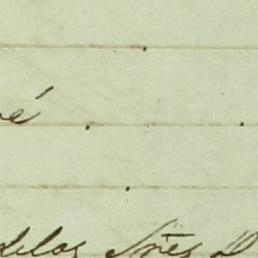 é
delos Sres D